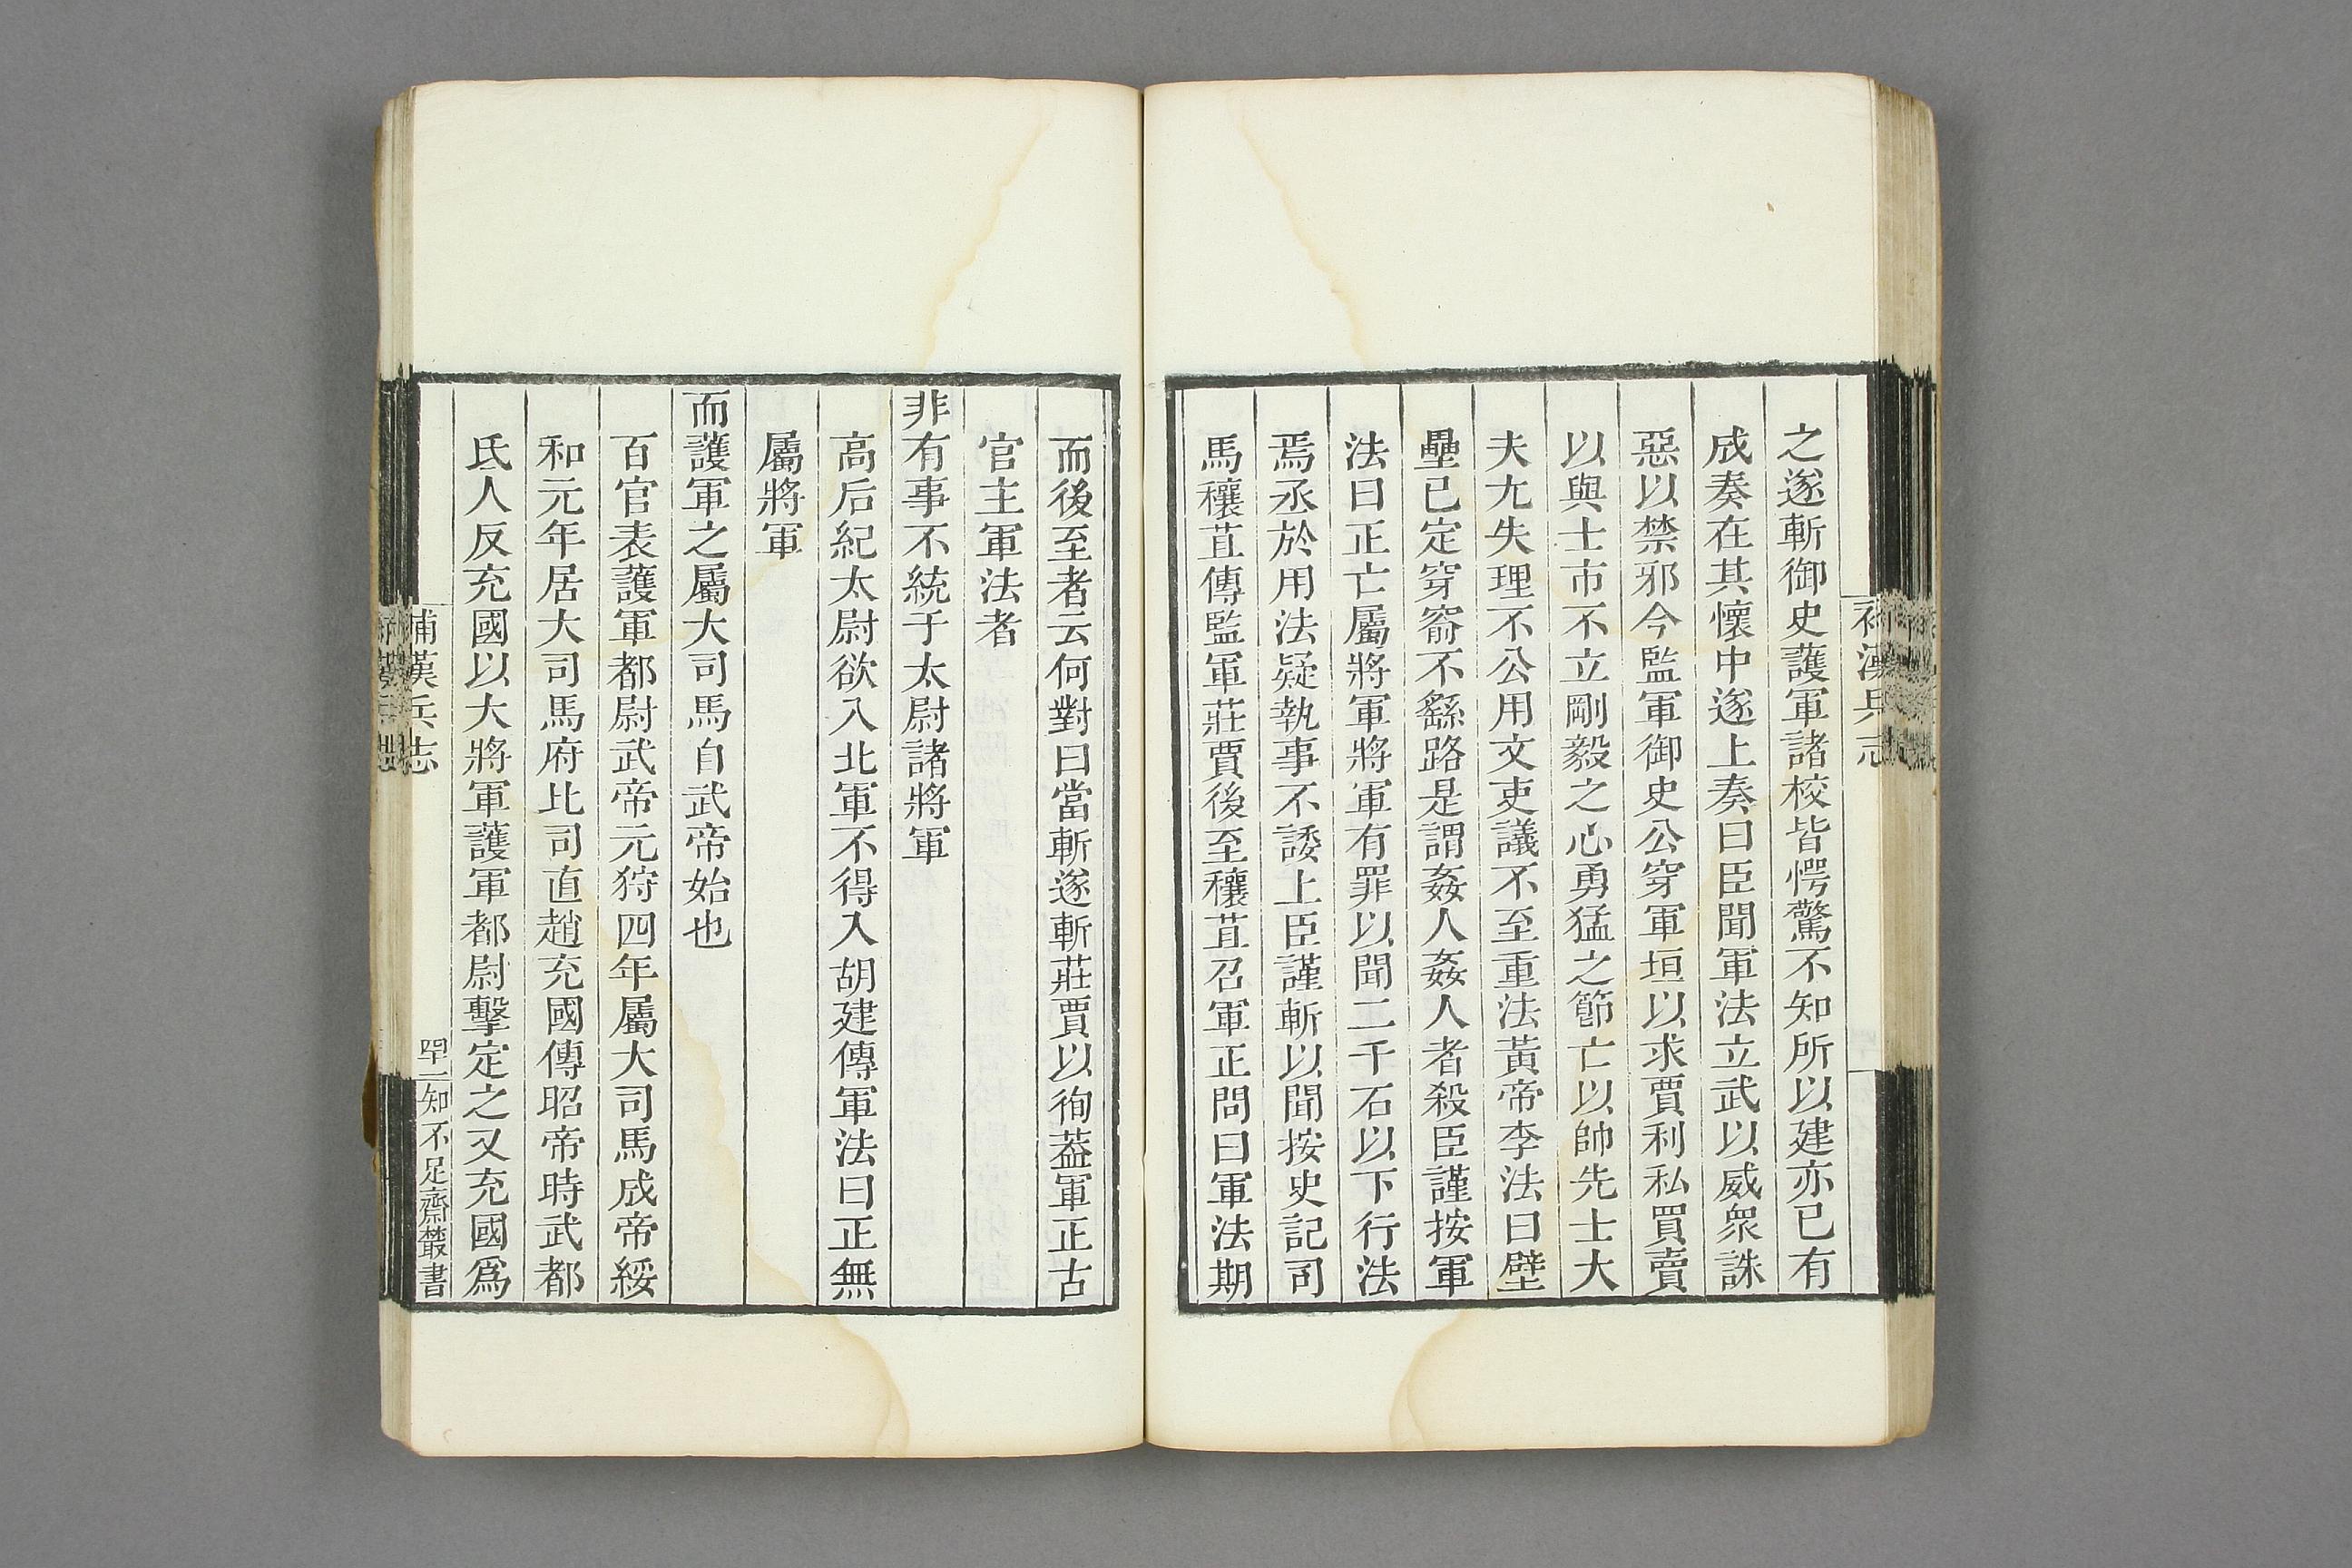 之遂斬御史護軍諸校皆愕驚不知所以建亦已有
成奏在其懷中遂上奏曰臣聞軍法立武以威衆誅
惡以禁邪今監軍御史公穿軍垣以求賈利私買賣
以與士市不立剛毅之心勇猛之節亡以帥先士大
夫尤失理不公用文吏議不至重法黃帝李法曰壁
壘已定穿窬不繇路是謂姦人姦人者殺臣謹按軍
法曰正亡屬將軍將軍有罪以聞二千石以下行法
焉丞於用法疑執事不諉上臣謹斬以聞按史記司
馬穰苴傳監軍莊賈後至穰苴召軍正問曰軍法期
而後至者云何對曰當斬遂斬莊賈以徇葢軍正古
官主軍法者
非有事不統于太尉諸將軍
高后紀太尉欲入北軍不得入胡建傳軍法曰正無
屬將軍
而護軍之屬大司馬自武帝始也
百官表護軍都尉武帝元狩四年屬大司馬成帝綏
和元年居大司馬府比司直趙充國傳昭帝時武都
氐人反充國以大將軍護軍都尉擊定之又充國爲
補漢兵志
罕二
知不足齋叢書